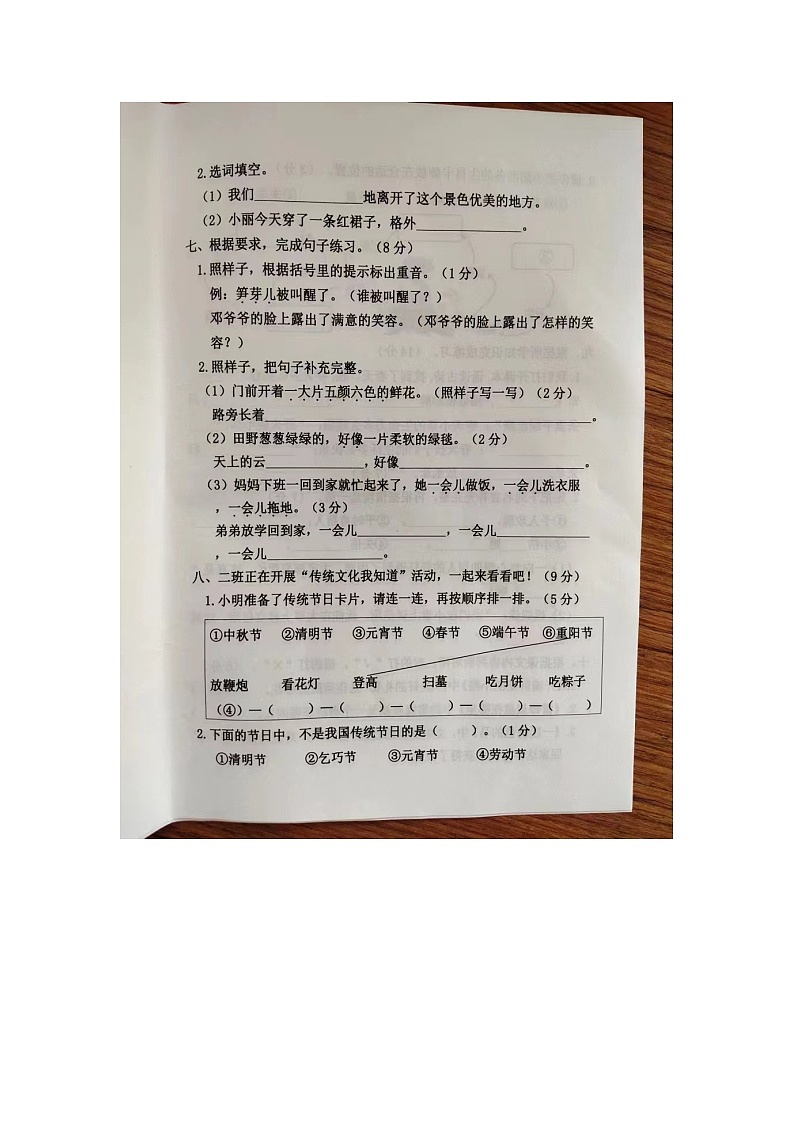 2.选词填空。
(1)我们______________地离开了这个景色优美的地方。
(2)小丽今天穿了一条红裙子，格外______________。
七、根据要求，完成句子练习。(8分)
1.照样子，根据括号里的提示标出重音。(1分)
例：笋芽儿被叫醒了。(谁被叫醒了？)
邓爷爷的脸上露出了满意的笑容。(邓爷爷的脸上露出了怎样的笑
容？)
2.照样子，把句子补充完整。
(1)门前开着一大片五颜六色的鲜花。(照样子写一写)(2分)
路旁长着____________________________________________。
(2)田野葱葱绿绿的，好像一片柔软的绿毯。(2分)
天上的云______________，好像________________________。
(3)妈妈下班一回到家就忙起来了，她一会儿做饭，一会儿洗衣服
，一会儿拖地。(3分)
弟弟放学回到家，一会儿____________，一会儿____________
，一会儿______________。
八、二班正在开展“传统文化我知道”活动，一起来看看吧！(9分)
1.小明准备了传统节日卡片，请连一连，再按顺序排一排。(5分)
①中秋节 ②清明节 ③元宵节 ④春节 ⑤端午节 ⑥重阳节
放鞭炮 看花灯 登高 扫墓 吃月饼 吃粽子
(④)—( )—( )—( )—( )—( )
2.下面的节日中，不是我国传统节日的是( )。(1分)
①清明节 ②乞巧节 ③元宵节 ④劳动节